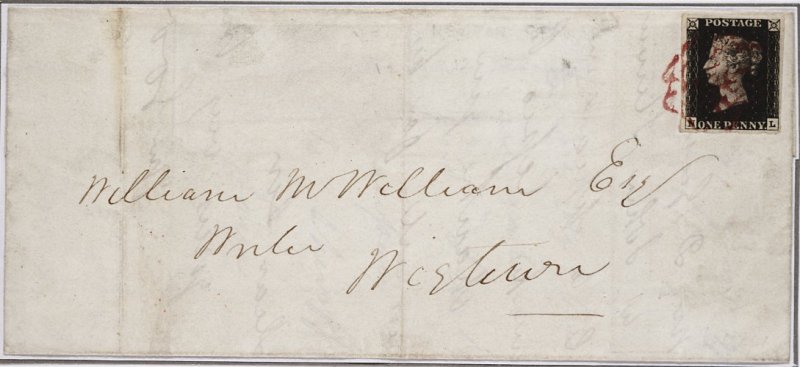 POSTAGE
ONE PENNY L
William McWilliam Esq
Writer
Wigtown